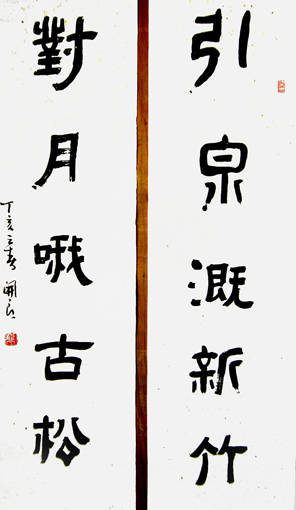 引泉溉新竹
對月哦古松
丁亥春